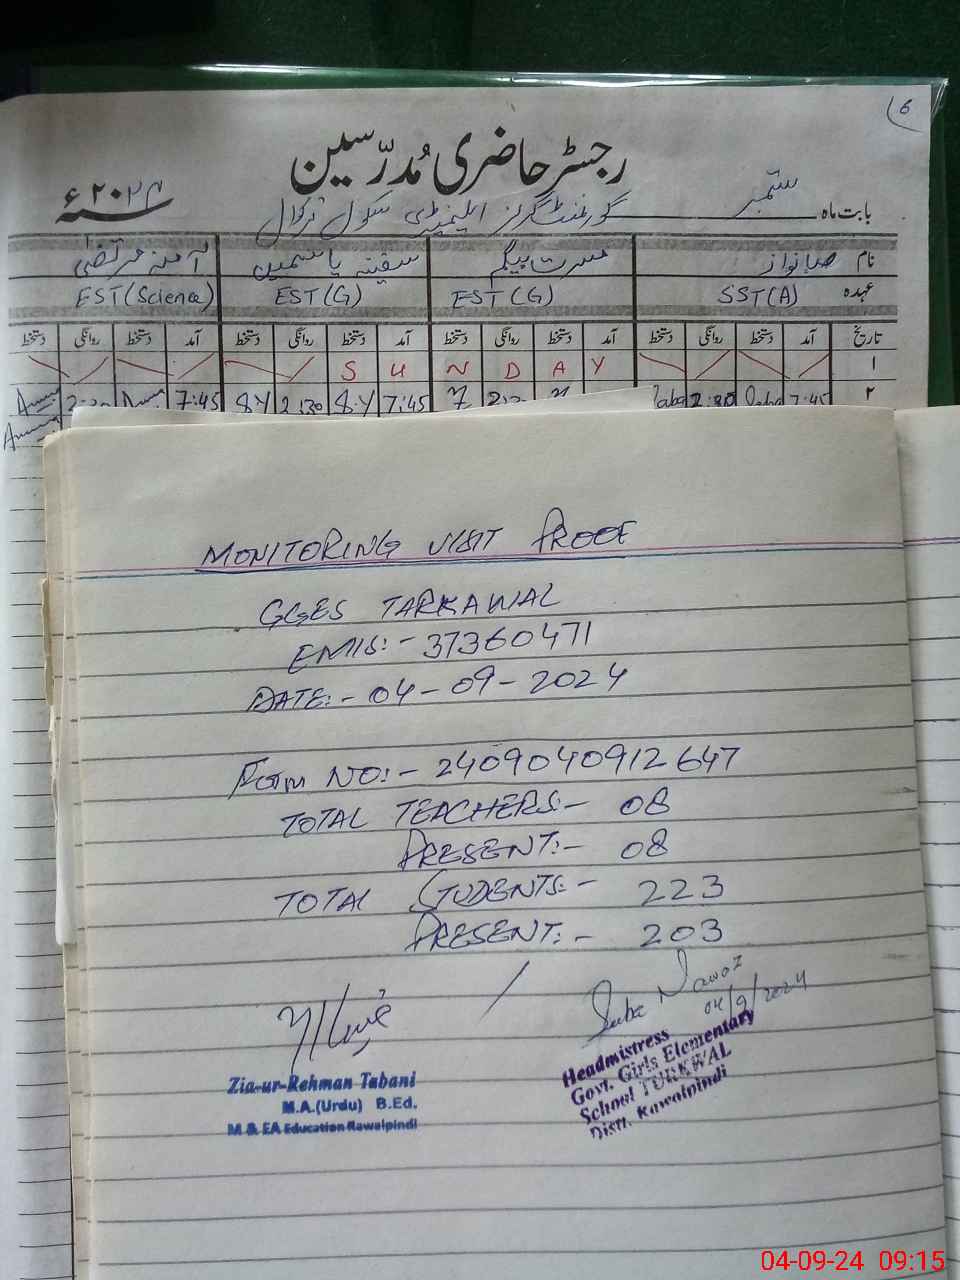 6
رجسٹر حاضری مُدرّسین
بابت ماہ ستمبر گورنمنٹ گرلز ایلیمنٹری سکول ترکوال سنہ ۲۰۲۴ء
نام صبا نواز مسرت بیگم سفینہ یاسمین آمنہ مرتضیٰ
عہدہ SST(A) EST(G) EST(G) EST(Science)
تاریخ آمد دستخط روانگی دستخط آمد دستخط روانگی دستخط آمد دستخط روانگی دستخط آمد دستخط روانگی دستخط
۱ S U N D A Y
۲ 7:45 Saba 2:30 Saba 7:45 8.Y 2:30 8.Y 7:45
MONITORING VISIT PROOF
GGES TARKAWAL
EMIS:- 37360471
DATE:- 04-09-2024
Form NO:- 2409040912647
TOTAL TEACHERS:- 08
PRESENT:- 08
TOTAL STUDENTS:- 223
PRESENT:- 203
Saba Nawaz
04/9/2024
Zia-ur-Rehman Tabani
M.A.(Urdu) B.Ed.
M & EA Education Rawalpindi
Headmistress
Govt. Girls Elementary
School TURKWAL
Distt. Rawalpindi
04-09-24 09:15